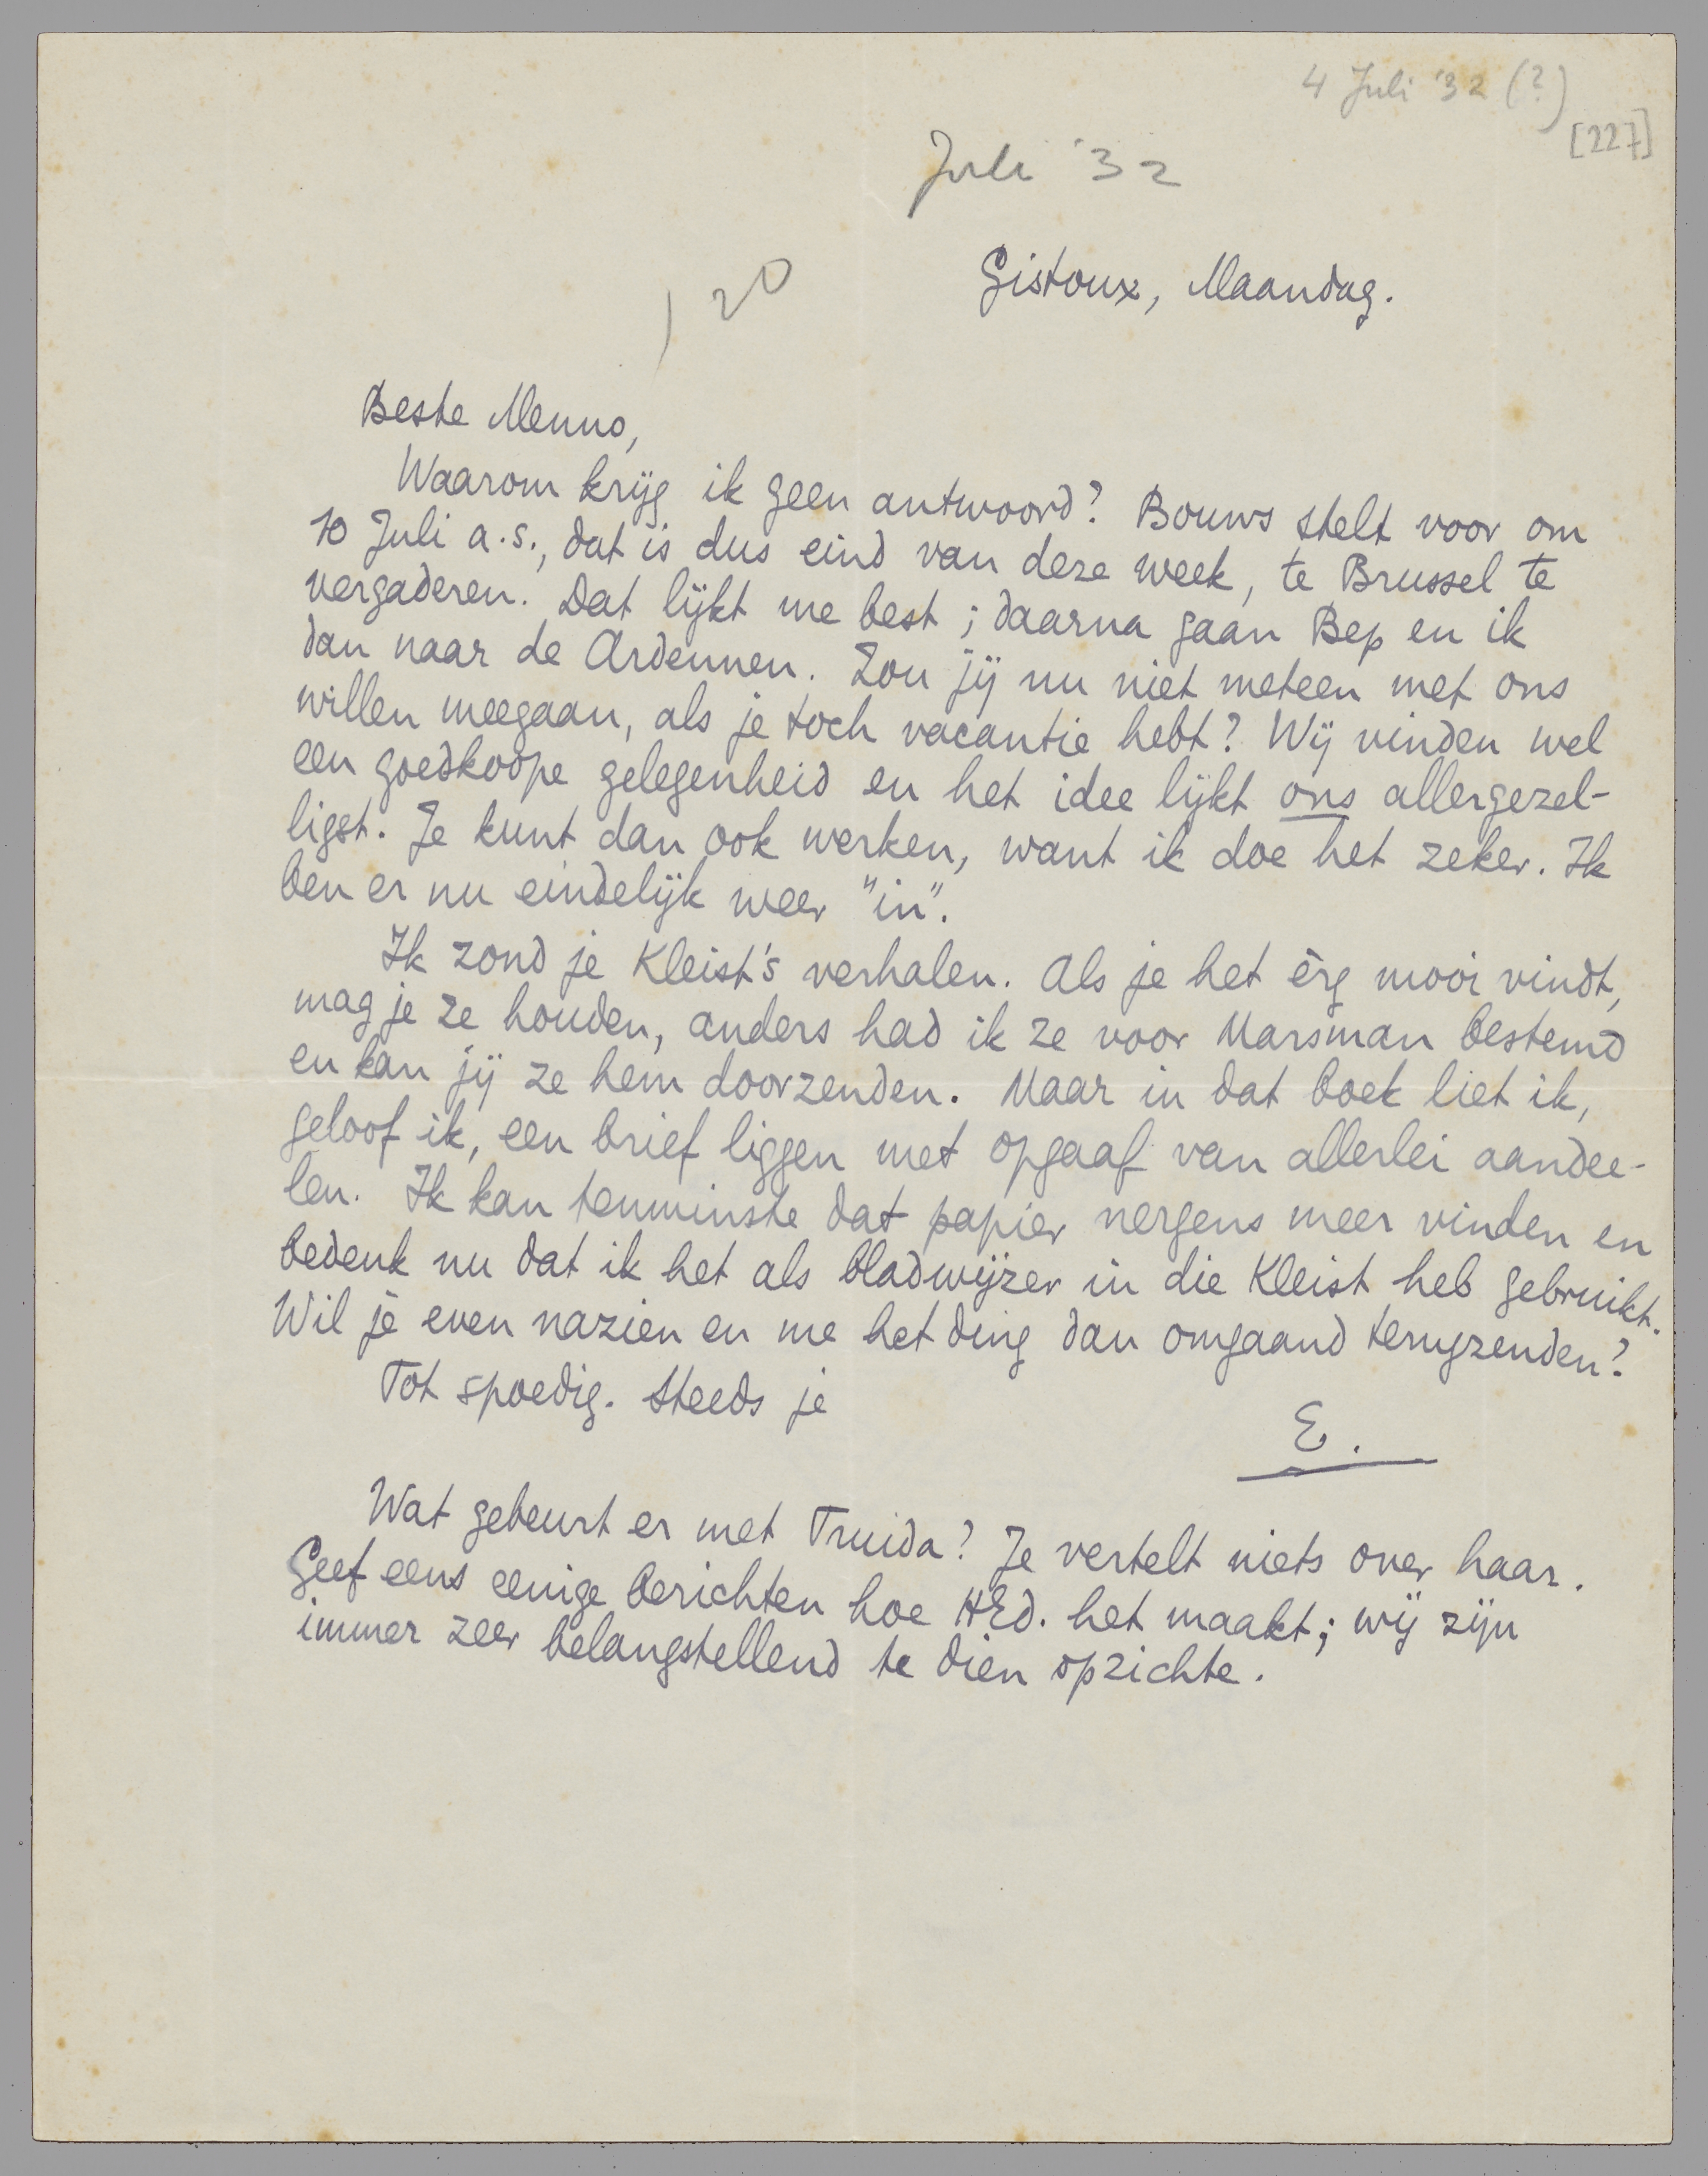 4 Juli '32 (?)
[227]
Juli '32
120
Gistoux, Maandag.
Beste Menno,
Waarom krijg ik geen antwoord? Bouws stelt voor om
10 Juli a.s., dat is dus eind van deze week, te Brussel te
vergaderen. Dat lijkt me best; daarna gaan Bep en ik
dan naar de Ardennen. Zou jij nu niet meteen met ons
willen meegaan, als je toch vacantie hebt? Wij vinden wel
een goedkoope gelegenheid en het idee lijkt ons allergezel-
ligst. Je kunt dan ook werken, want ik doe het zeker. Ik
ben er nu eindelijk weer "in".
Ik zond je Kleist's verhalen. Als je het èrg mooi vindt,
mag je ze houden, anders had ik ze voor Marsman bestemd
en kan jij ze hem doorzenden. Maar in dat boek liet ik,
geloof ik, een brief liggen met opgaaf van allerlei aandee-
len. Ik kan tenminste dat papier nergens meer vinden en
bedenk nu dat ik het als bladwijzer in die Kleist heb gebruikt.
Wil je even nazien en me het ding dan omgaand terugzenden?
Tot spoedig. Steeds je
E.
Wat gebeurt er met Truida? Je vertelt niets over haar.
Geef eens eenige berichten hoe HEd. het maakt; wij zijn
immer zeer belangstellend te dien opzichte.